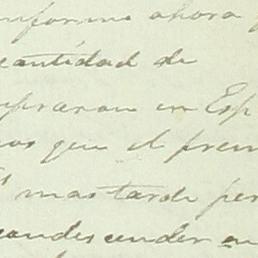 informe ahora
cantidad de
praron en Esp
os que el prem
mas tarde per
condescender en